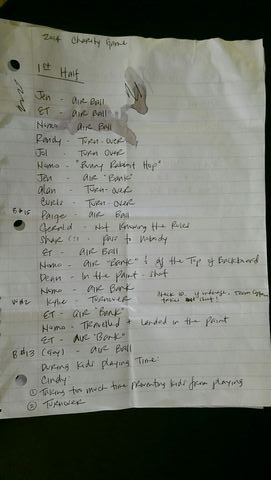 2004 Charity Game
1st Half
Jen - AIR BALL
ET - AIR BALL
Nomo - AIR BALL
Randy - Turn-over
Jol - Turn over
Nomo - "Bunny Rabbit Hop"
Jen - AIR "Bank"
Alan - Turn-over
Curtis - Turn-over
B#15 Paige - air Ball
Gerald - Not Knowing the Rules
Shar - Pass to Nobody
ET - AIR Ball
Nomo - AIR "Bank" & off the Top of Backboard
Dean - In the Paint - shot
Nomo - AIR Bank
W#2 Kylie - Turnover
takes shot!
ET - AIR "Bank"
Nomo - Travelled + Landed in the Paint
ET - AIR "Bank"
B#13 (Gay) - AIR Ball
During Kids Playing Time:
Cindy
① Taking too much time preventing kids from playing
② Turnover